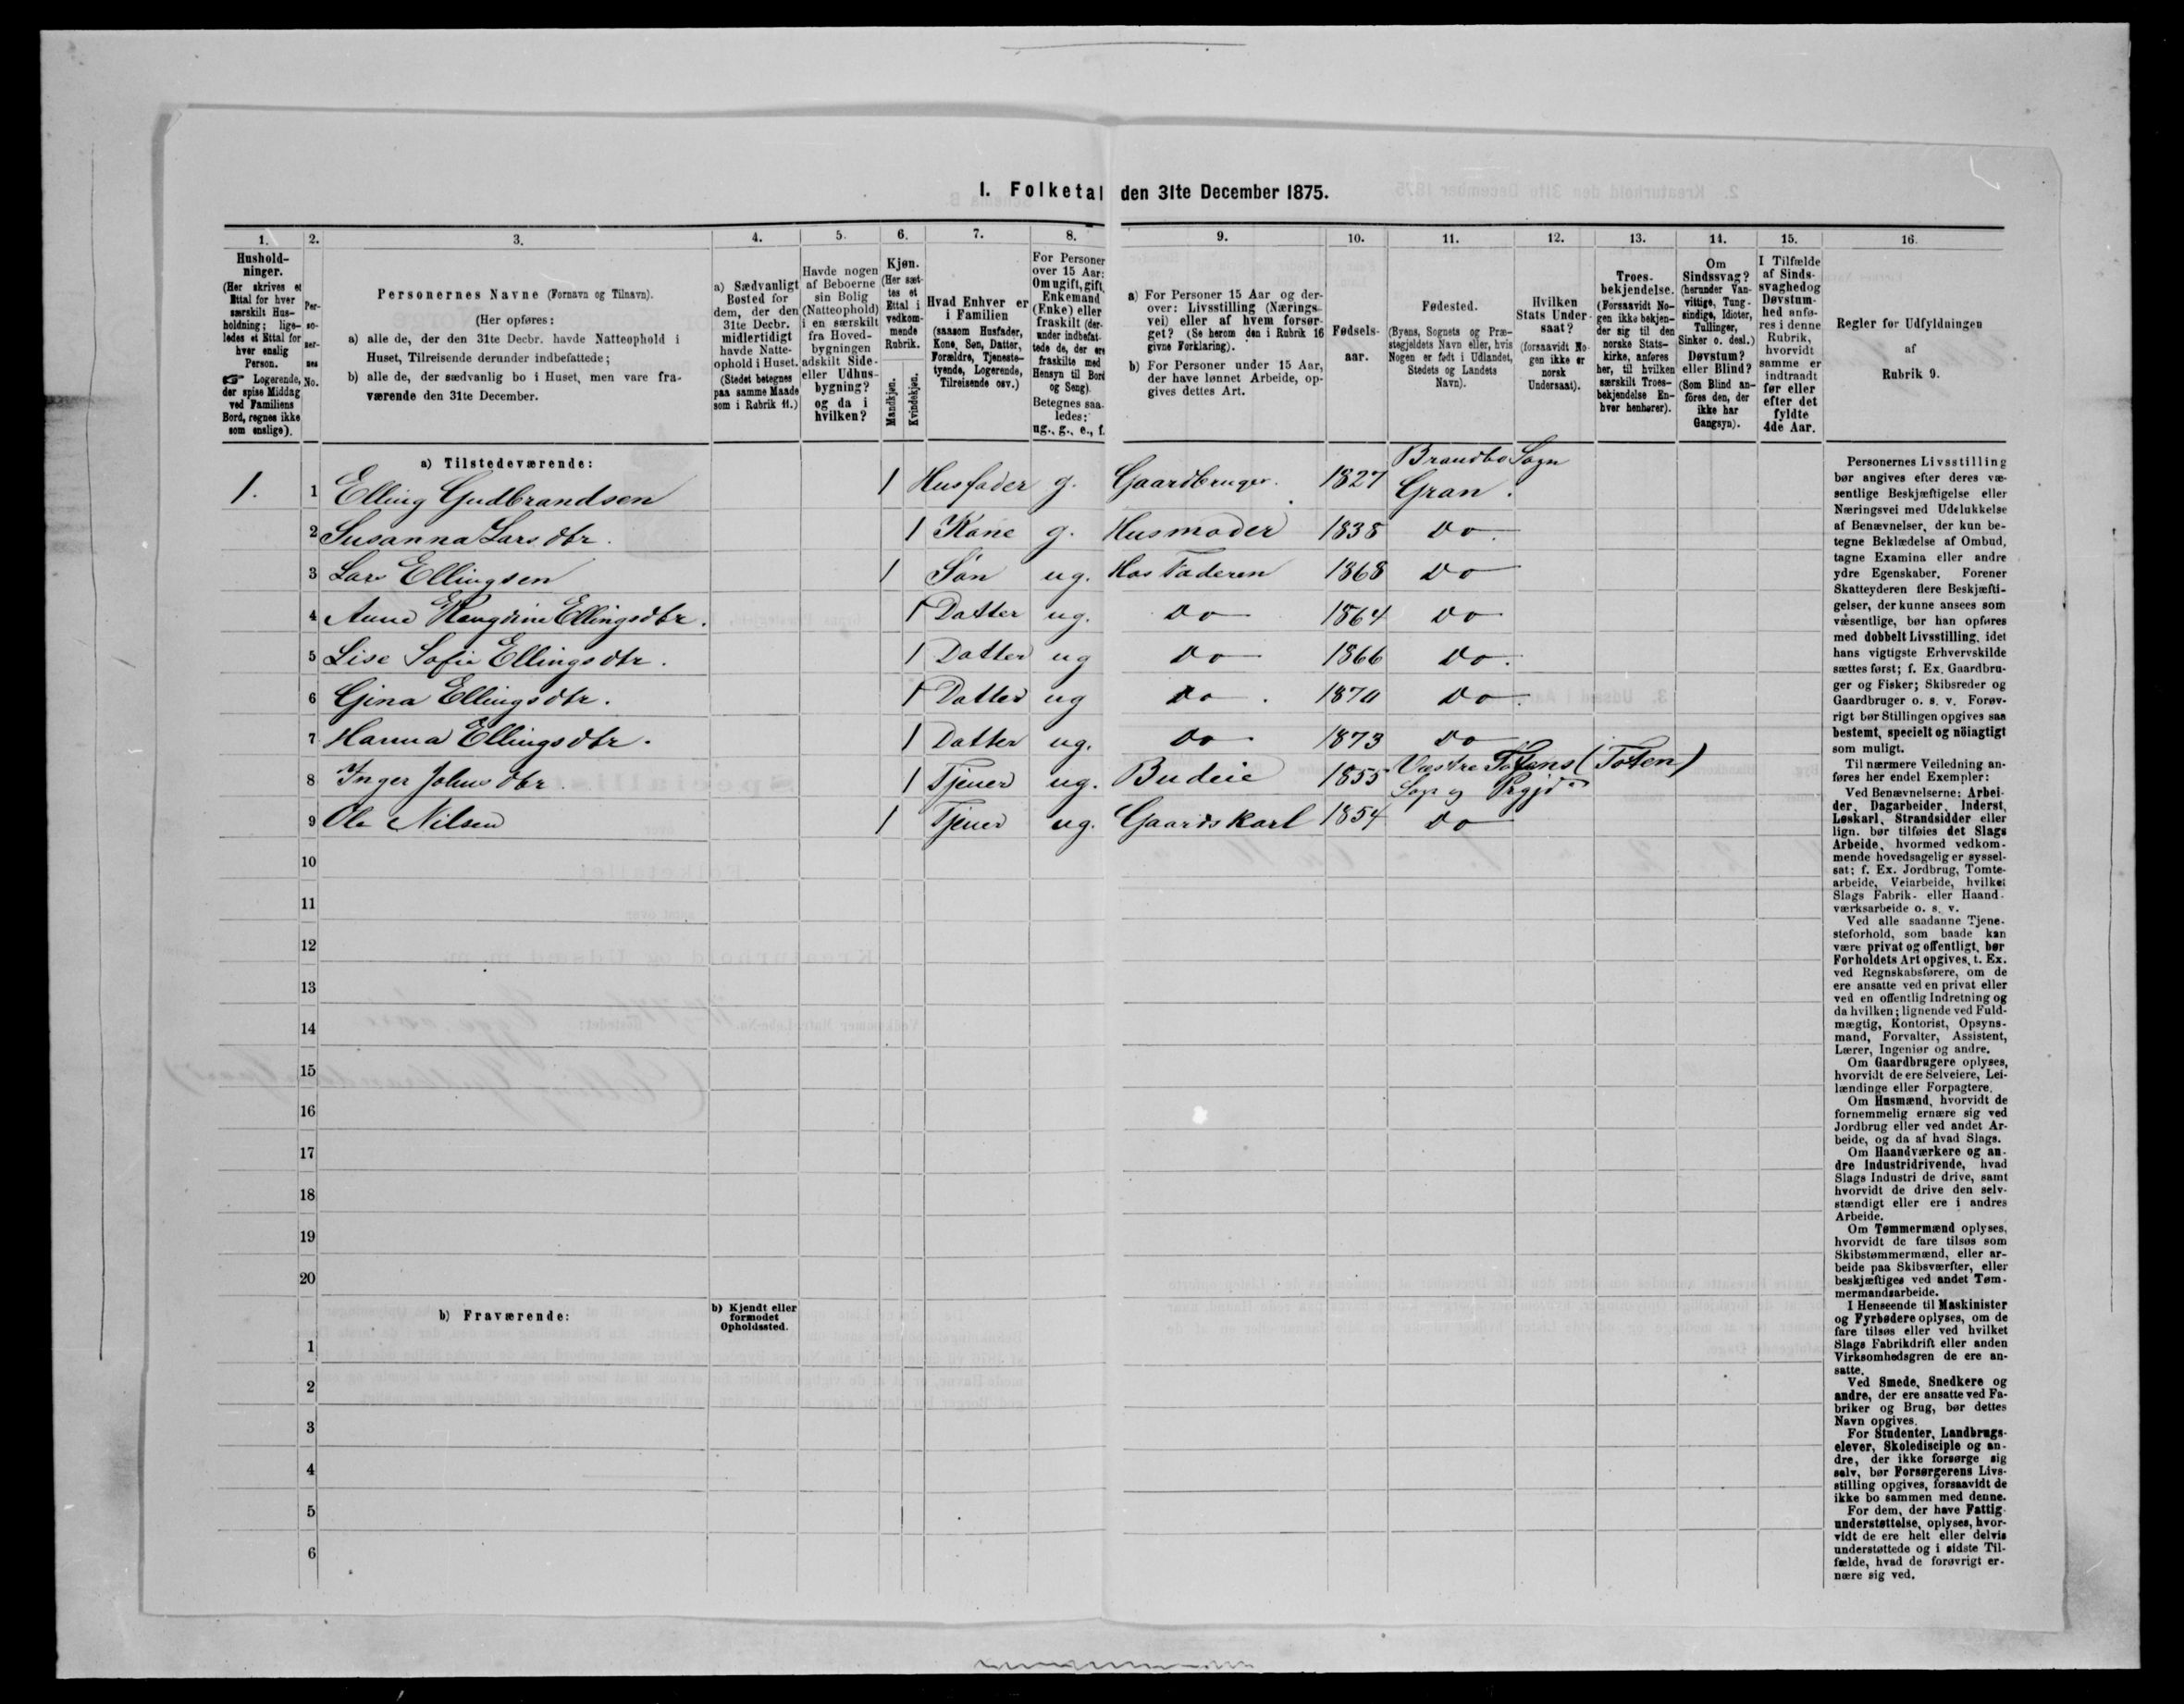 1. Folketal den 31te December 1875.
1. 2. 3. 4. 5. 6. 7. 8. 9. 10. 11. 12. 13. 14. 15. 16.
Hushold-
ninger.
(Her skrives et
Ettal for hver
særskilt Hus-
holdning; lige-
ledes et Ettal for
hver enslig
Person.
☞ Logerende,
der spise Middag
ved Familiens
Bord, regnes ikke
som enslige).
Per-
so-
ner-
nes
No.
Personernes Navne (Fornavn og Tilnavn).
(Her opføres:
a) alle de, der den 31te Decbr. havde Natteophold i
Huset, Tilreisende derunder indbefattede;
b) alle de, der sædvanlig bo i Huset, men vare fra-
værende den 31te December.
a) Sædvanligt
Bosted for
dem, der den
31te Decbr.
midlertidigt
havde Natte-
ophold i Huset.
(Stedet betegnes
paa samme Maade
som i Rubrik 11.)
Havde nogen
af Beboerne
sin Bolig
(Natteophold)
i en særskilt
fra Hoved-
bygningen
adskilt Side-
eller Udhus-
bygning?
og da i
hvilken?
Kjøn.
(Her sæt-
tes et
Ettal i
vedkom-
mende
Rubrik.
Mandkjøn.
Kvindekjøn.
Hvad Enhver er
i Familien
(saasom Husfader,
Kone, Søn, Datter,
Forældre, Tjeneste-
tyende, Logerende,
Tilreisende osv.)
For Personer
over 15 Aar:
Om ugift, gift,
Enkemand
(Enke) eller
fraskilt (der-
under indbefat-
tede de, der ere
fraskilte med
Hensyn til Bord
og Seng).
Betegnes saa-
ledes:
ug., g., e., f.
a) For Personer 15 Aar og der-
over: Livsstilling (Nærings-
vei) eller af hvem forsør-
get? (Se herom den i Rubrik 16
givne Forklaring).
b) For Personer under 15 Aar,
der have lønnet Arbeide, op-
gives dettes Art.
Fødsels-
aar.
Fødested.
(Byens, Sognets og Præ-
stegjeldets Navn eller, hvis
Nogen er født i Udlandet,
Stedets og Landets
Navn).
Hvilken
Stats Under-
saat?
(forsaavidt No-
gen ikke er
norsk
Undersaat).
Troes-
bekjendelse.
(Forsaavidt No-
gen ikke bekjen-
der sig til den
norske Stats-
kirke, anføres
her, til hvilken
særskilt Troes-
bekjendelse En-
hver henhører).
Om
Sindssvag?
(herunder Van-
vittige, Tung-
sindige, Idioter,
Tullinger,
Sinker o. desl.)
Døvstum?
eller Blind?
(Som Blind an-
føres den, der
ikke har
Gangsyn).
I Tilfælde
af Sinds-
svaghed og
Døvstum-
hed anfø-
res i denne
Rubrik,
hvorvidt
samme er
indtraadt
før eller
efter det
fyldte
4de Aar.
Regler for Udfyldningen
af
Rubrik 9.
a) Tilstedeværende:
Brandbo Sogn
1. 1 Elling Gudbrandsen 1 Husfader g. Gaardbruger. 1827 Gran.
2 Susanna Larsdtr. 1 Kone g. Husmoder 1838 Do
3 Lars Ellingsen 1 Søn ug. Hos Faderen 1868 Do
4 Anne Rangdine Ellingsdtr. 1 Datter ug. Do 1864 Do
5 Lise Sofie Ellingsdtr. 1 Datter ug Do 1866 Do.
6 Gina Ellingsdtr. 1 Datter ug Do. 1870 Do.
7 Hanna Ellingsdtr. 1 Datter ug. Do 1873 Do
8 Inger Johnsdtr. 1 Tjener ug. Budeie 1855 Vestre Totens (Toten)
Sogn og Prgjd
9 Ole Nilsen 1 Tjener ug. Gaardskarl 1854 Do
10
11
12
13
14
15
16
17
18
19
20
b) Fraværende:
b) Kjendt eller
formodet
Opholdssted.
1
2
3
4
5
6
Personernes Livsstilling
bør angives efter deres væ-
sentlige Beskjæftigelse eller
Næringsvei med Udelukkelse
af Benævnelser, der kun be-
tegne Beklædelse af Ombud,
tagne Examina eller andre
ydre Egenskaber. Forener
Skatteyderen flere Beskjæfti-
gelser, der kunne ansees som
væsentlige, bør han opføres
med dobbelt Livsstilling, idet
hans vigtigste Erhvervskilde
sættes først; f. Ex. Gaardbru-
ger og Fisker; Skibsreder og
Gaardbruger o. s. v. Forøv-
rigt bør Stillingen opgives saa
bestemt, specielt og nöiagtigt
som muligt.
Til nærmere Veiledning an-
føres her endel Exempler:
Ved Benævnelserne: Arbei-
der, Dagarbeider, Inderst,
Løskarl, Strandsidder eller
lign. bør tilføies det Slags
Arbeide, hvormed vedkom-
mende hovedsagelig er syssel-
sat; f. Ex. Jordbrug, Tomte-
arbeide, Veiarbeide, hvilket
Slags Fabrik- eller Haand-
værksarbeide o. s. v.
Ved alle saadanne Tjene-
steforhold, som baade kan
være privat og offentligt, bør
Forholdets Art opgives, t. Ex.
ved Regnskabsførere, om de
ere ansatte ved en privat eller
ved en offentlig Indretning og
da hvilken; lignende ved Fuld-
mægtig, Kontorist, Opsyns-
mand, Forvalter, Assistent,
Lærer, Ingeniør og andre.
Om Gaardbrugere oplyses,
hvorvidt de ere Selveiere, Lei-
lændinge eller Forpagtere.
Om Husmænd, hvorvidt de
fornemmelig ernære sig ved
Jordbrug eller ved andet Ar-
beide, og da af hvad Slags.
Om Haandværkere og an-
dre Industridrivende, hvad
Slags Industri de drive, samt
hvorvidt de drive den selv-
stændigt eller ere i andres
Arbeide.
Om Tømmermænd oplyses,
hvorvidt de fare tilsøs som
Skibstømmermænd, eller ar-
beide paa Skibsværfter, eller
beskjæftiges ved andet Tøm-
mermandsarbeide.
I Henseende til Maskinister
og Fyrbødere oplyses, om de
fare tilsøs eller ved hvilket
Slags Fabrikdrift eller anden
Virksomhedsgren de ere an-
satte.
Ved Smede, Snedkere og
andre, der ere ansatte ved Fa-
briker og Brug, bør dettes
Navn opgives.
For Studenter, Landbrugs-
elever, Skoledisciple og an-
dre, der ikke forsørge sig
selv, bør Forsørgerens Livs-
stilling opgives, forsaavidt de
ikke bo sammen med denne.
For dem, der have Fattig-
understøttelse, oplyses, hvor-
vidt de ere helt eller delvis
understøttede og i sidste Til-
fælde, hvad de forøvrigt er-
nære sig ved.